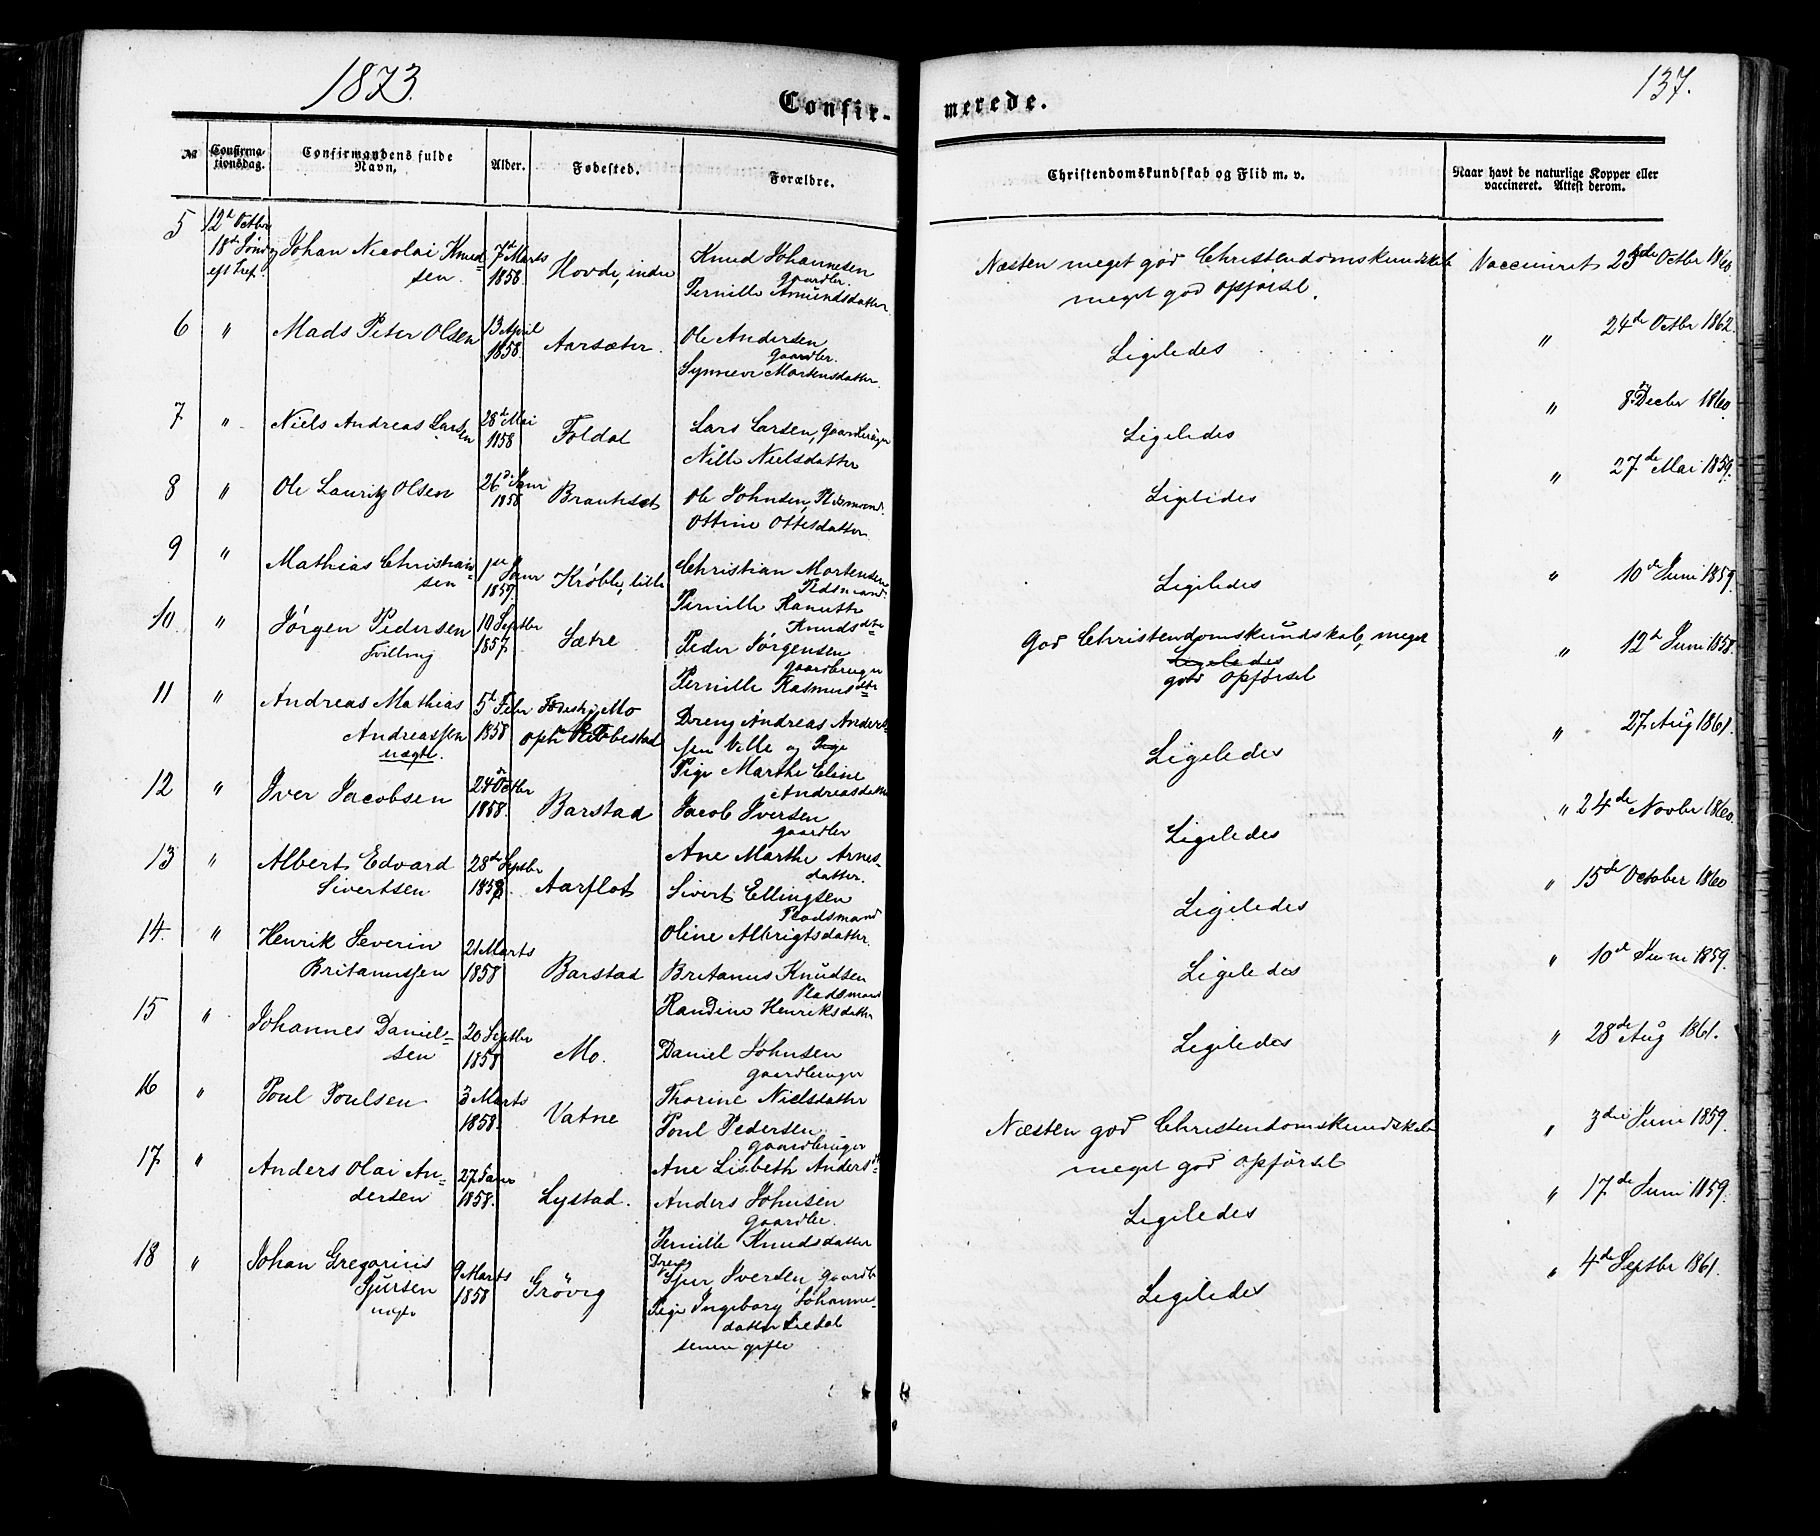 1873.
137.
Confir-
merede.
№
Confirma-
tionsdag.
Confirmandens fulde
Navn.
Alder.
Fødested.
Forældre.
Christendomskundskab og Flid m. v.
Naar havt de naturlige Kopper eller
vaccineret. Attest derom.
5
12te Octbr
18de Sønd
eft Tref.
Johan Nicolai Knud-
sen.
7de Marts
1858
Hovde, indre
Knud Johannesen
Gaardbr.
Pernille Amundsdatter
Næsten meget god Christendomskundskab
meget god Opførsel.
Vaccineret 23de Octbr 1860
6 " Mads Peter Olsen
13 April
1858
Aarsæter.
Ole Andersen
Gaardbr.
Synneve Mortensdatter.
Ligeledes
" 24de Octbr 1862.
7 " Niels Andreas Lar-
sen
28de Mai
1858
Foldal
Lars Larsen, Gaardbruger
Nille Nielsdatter
Ligeledes
" 8de Decbr 1860.
8 " Ole Lauritz Olsen
26de Janr
1858
Ole Johnsen, Pldsmand.
Ottine Ottesdatter
Ligeledes
" 27de Mai 1859.
9 " Mathias Christian-
sen
1ste Janr
1859.
Krøble, lille
Christian Mortensen
Pldsmand.
Pernille
Knudsdtr
Ligeledes
" 10de Juni 1859.
10. " Jørgen Pedersen
Tvilling
10 Septbr
1857
Sætre
Peder Jørgensen
Gaardbruger
Pernille Rasmusdtr
God Christendomskundskab, meget
Ligeledes
god Opførsel
" 12te Juni 1858.
11 " Andreas Mathias
Andreassen
uægte.
5te Febr
1858
Mo
Dreng Andreas Anders-
sen Velle og Pige
Pige Marthe Eline
Andreasdatter
Ligeledes
" 27 Aug 1861.
12 " Iver Jacobsen
24de Octbr
1858
Barstad
Jacob Iversen
Gaardbr
Ane Marthe Arnes-
datter.
Ligeledes
" 24de Novbr 1860.
13 " Albert Edvard
Sivertsen
28de Septbr
1858.
Aarflot
Sivert Ellingsen
Pladsmand
Oline Albrigtsdatter.
Ligeledes
" 15de October 1860
14. " Henrik Severin
Britanussen
21 Marts
1858
Barstad
Britanus Knudsen
Pladsmand
Randine Henriksdatter
Ligeledes
" 10de Juni 1859.
15 " Johannes Daniel-
sen
20 Septbr
1858
Mo.
Daniel Johnsen
Gaardbruger
Thorine Nielsdatter
Ligeledes
" 28de Aug 1861.
16 " Poul Poulsen
3 Marts
1858.
Vatne
Poul Pedersen
Gaardbruger
Ane Lisbeth Andersdt
Næsten god Christendomskundskab
meget god Opførsel
" 3die Juni 1859.
17 " Anders Olai An-
dersen
27 Janr
1858.
Lystad.
Anders Johnsen
Gaardbr.
Pernille Knudsdatter
Ligeledes
" 17de Juni 1859.
18 " Johan Gregorius
Sjursen
uægte
9 Marts
1858
Grøvig
Dreng
Sjur Iversen, Gaardb
Pige Ingeborg Johanne-
datter
senere gifte
Ligeledes
" 4de Septbr 1861.